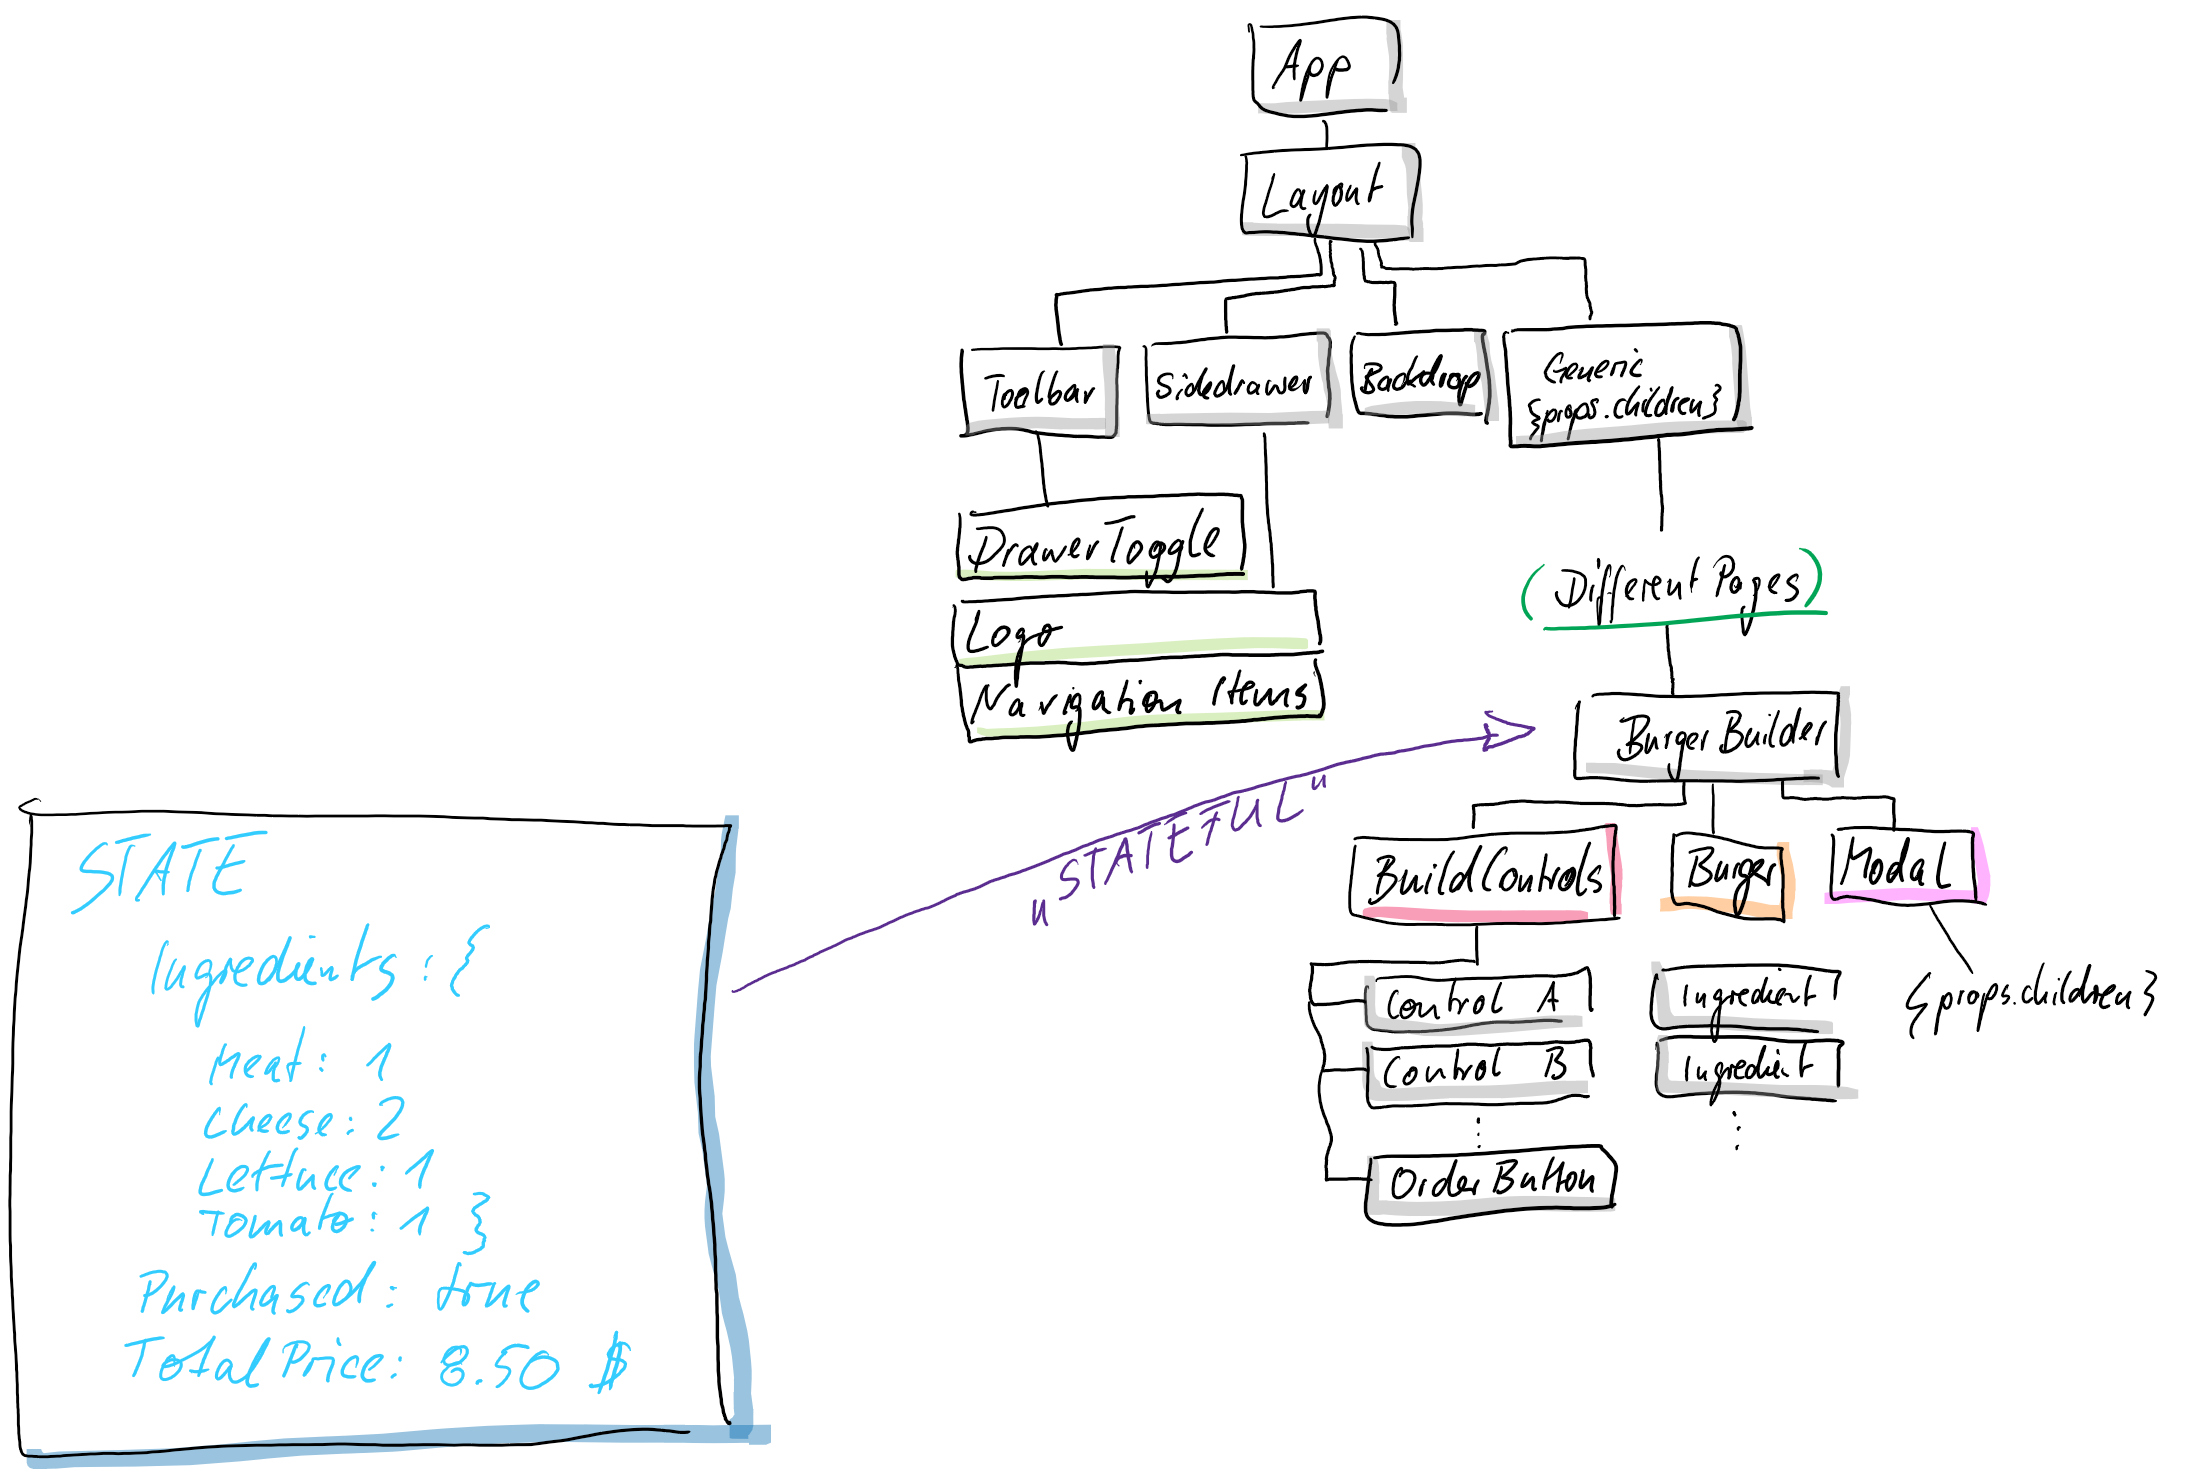 App
Layout
Toolbar
Sidedrawer
Backdrop
Generic
{props.children}
DrawerToggle
Logo
Navigation Items
(Different Pages)
Burger Builder
"STATEFUL"
BuildControls
Burger
Modal
Control A
Control B
⋮
Order Button
Ingredient
Ingredient
⋮
{props.children}
STATE
Ingredients: {
Meat: 1
Cheese: 2
Lettuce: 1
Tomato: 1 }
Purchased: true
Total Price: 8.50 $